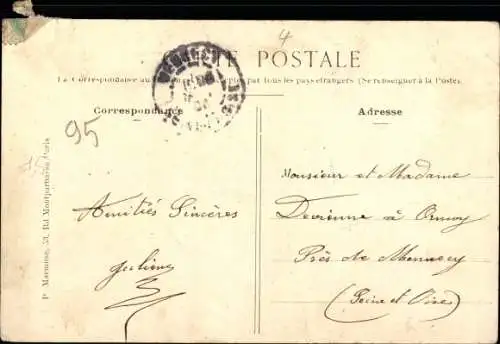 4
CARTE POSTALE
La Correspondance au pas par tous les pays étrangers (Se renseigner à la Poste)
Correspondance
Adresse
95
Amitiés Sincères
Monsieur et Madame
Devienne à Ormoy
Près de Mennecy
(Seine et Oise)
P. Marmuse, 53, Bd Montparnasse, Paris